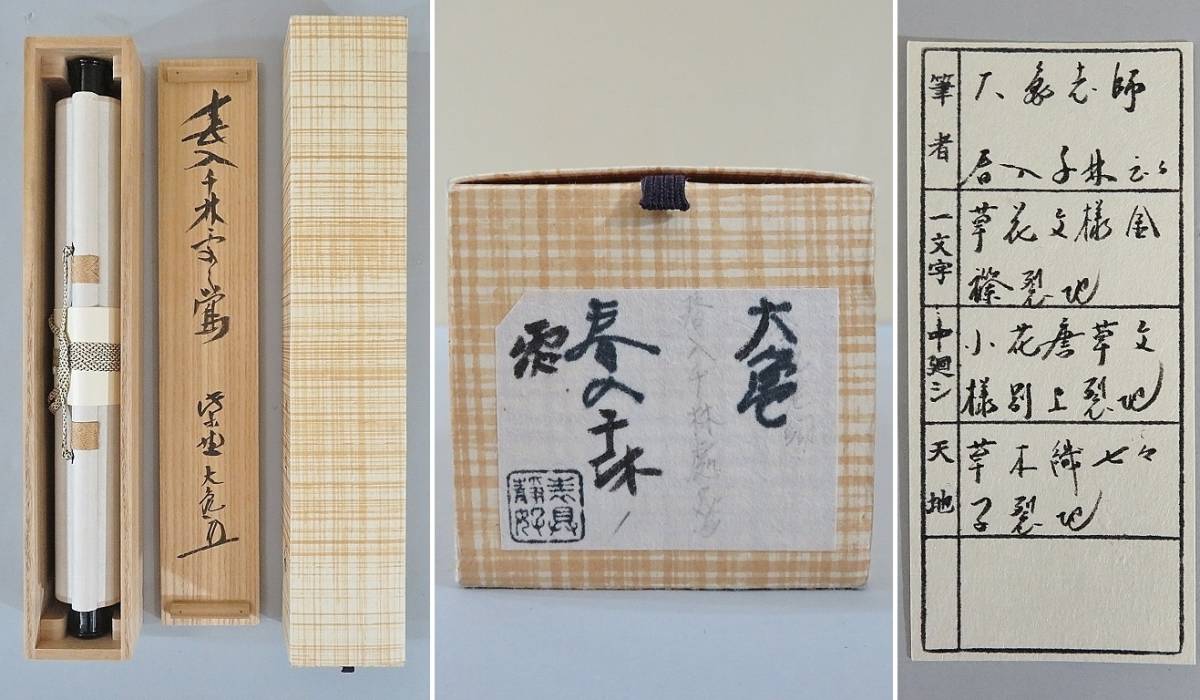 春入千林處々鶯
紫埜大亀
大亀
春入千林
處
表具
筆者
大亀老師
春入千林云々
一文字
草花文様金
襴裂地
中廻シ
小花唐草文
様別上裂地
天地
草木織七々
子裂地